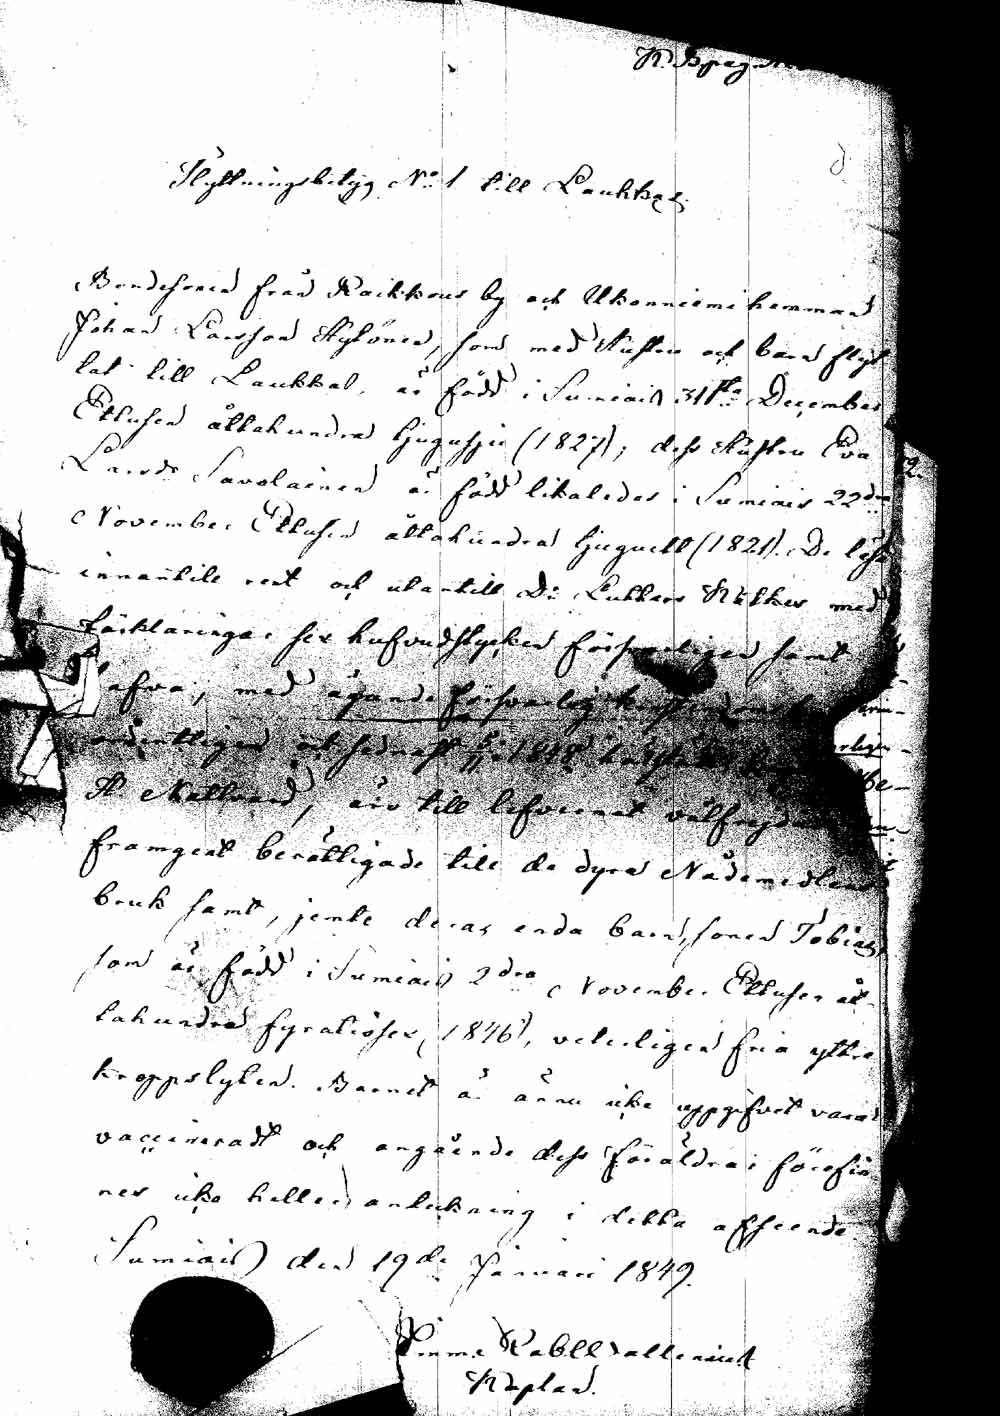 Flyttningsbetyg No 1 till Laukkas.
Bondesonen från Raikkous by och Ukonniemi hemman
Johan Larsson Hytönen, som med Hustru och barn flyt
tat till Laukkas, är född i Sumiais 31sta December
Ettusen åttahundra tjugusju (1827); dess Hustru Eva
Larsdr Savolainen är född likaledes i Sumiais 22dra
November Ettusen åttahundra tjuguett (1821). De läsa
innantill rent och utantill Dr Luthers Kateches med
förklaringar sex hufvudstycken försvarligen samt
med ägande försvarlig
ordentligen och sednast 1848
H. Nattvard, äro till lefvernet välfrejdade
framgent berättigade till de dyra Nådemedlens
bruk samt, jemte deras enda barn, sonen Tobias,
som är född i Sumiais 2dra November Ettusen åt-
tahundra fyratiosex (1846), veterligen fria yttre
kroppslyten. Barnet är ännu icke uppgifvet vara
vaccineradt och angående dess föräldrar förefin
nes icke heller anteckning i detta afseende.
Sumiais den 19de Januari 1849.
Kaplan.